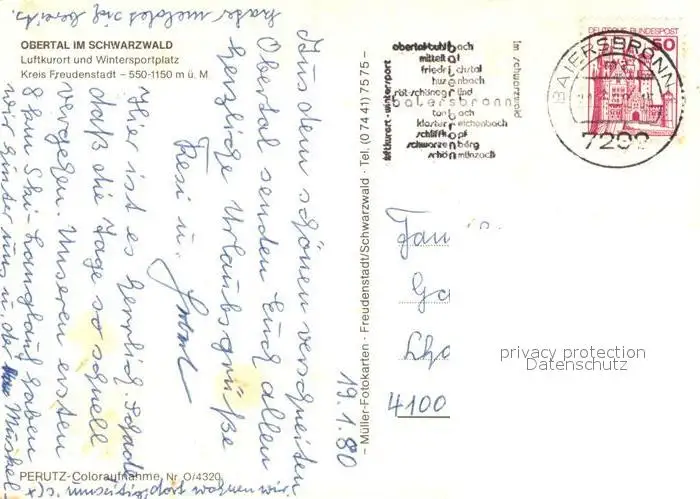 OBERTAL IM SCHWARZWALD
Luftkurort und Wintersportplatz
Kreis Freudenstadt – 550-1150 m ü. M.
Aus dem schönen verschneiten
Obertal senden Euch allen
herzliche Urlaubsgrüße
Resi u.
Hier ist es herrlich. Schade
daß die Tage so schnell
vergehen. Unseren ersten
8 km Ski-Langlauf haben
wir hinter uns u. der Muskel-
kater meldet sich bereits.
19.1.80
PERUTZ-Coloraufnahme, Nr. O/4320
– Müller-Fotokarten · Freudenstadt/Schwarzwald · Tel. (0 74 41) 75 75 –
luftkurort · wintersport
obertal-buhlbach
mitteltal
friedrichstal
huzenbach
röt-schönegründ
baiersbronn
tonbach
klosterreichenbach
schliffkopf
schwarzenberg
schönmünzach
im schwarzwald
BAIERSBRONN
7292
DEUTSCHE BUNDESPOST
50
4100
privacy protection
Datenschutz